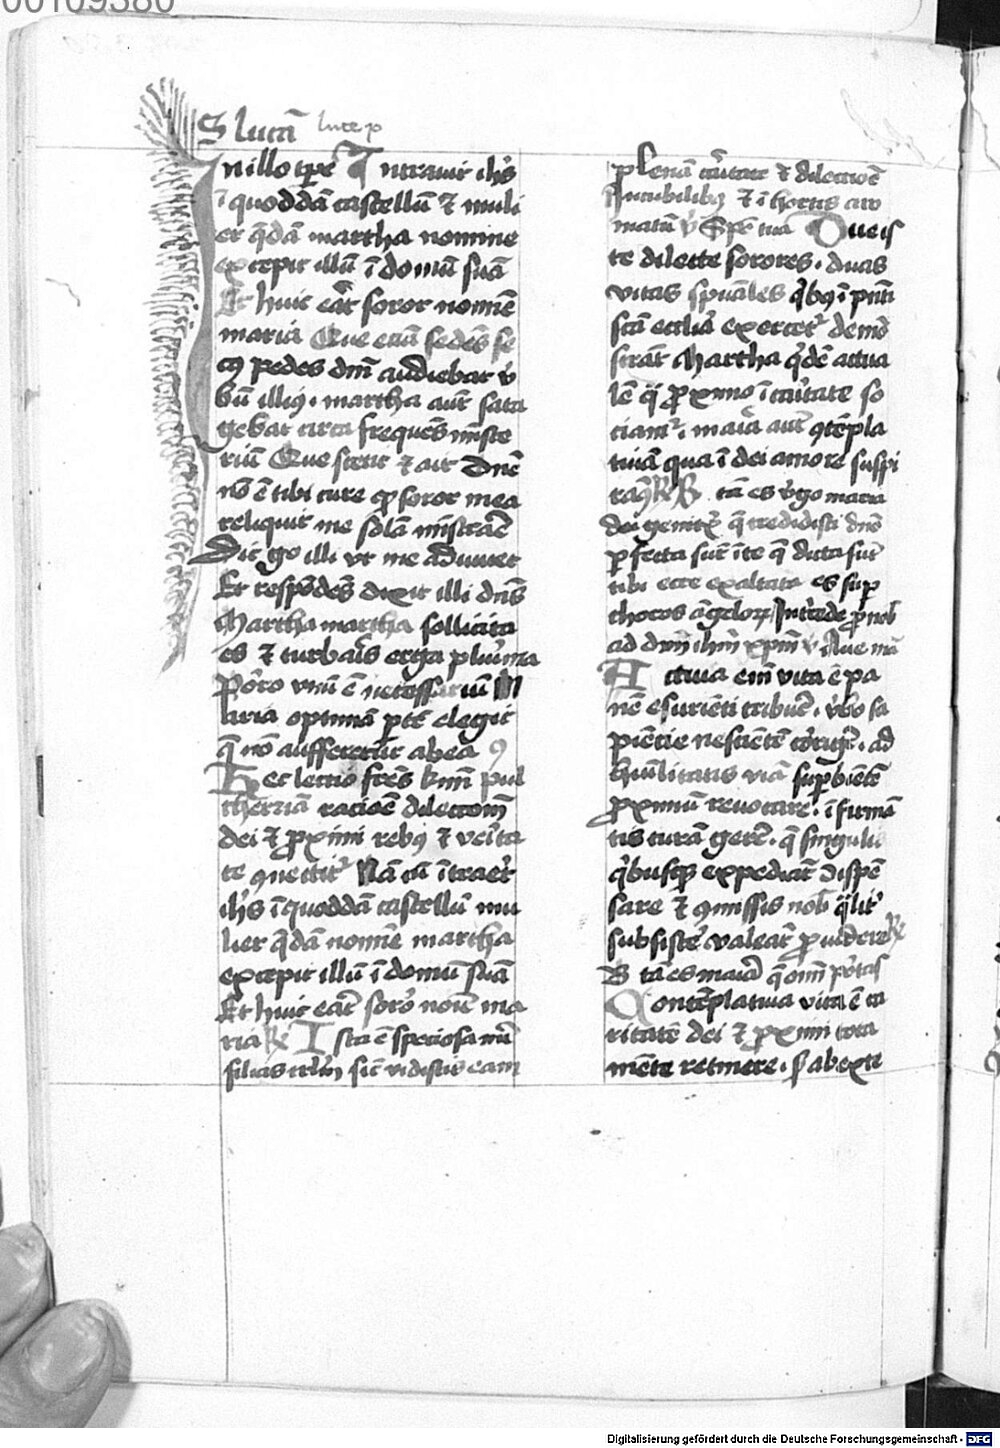 00109380
S lucā luce x
In illo tꝑe Intrauit ihs
ī quoddā castellū ⁊ muli
er q̄dā martha nomine
excepit illū ī domū suā
Et huic erāt soror nomīe
maria Que etiā sedēs se
cꝰ pedes dn̄i audiebat v̓
bū illiꝰ. martha aut̄ sata
gebat circa frequēs mīste
riū Que stetit ⁊ ait Dn̄e
nō ē tibi cure ꝙ soror mea
reliquit me solā mīstraē
Dic ḡo illi vt me adiuuet
Et respōdēs dixit illi dn̄s
Martha martha sollicita
es ⁊ turbaīs erga plurīma
Porro vnū ē necessariū M
aria optimā ꝑtē elegit
q̄ nō aufferetur ab ea
Hec lectio frēs kmī pul
cherrīā racioē dilectiōnī
dei ⁊ ꝓximi rebꝰ ⁊ veīta
te ꝯnectit̄ Nā cū ītraet̄
ihs ī quoddā castellū mu
lier q̄dā nomīe martha
excepit illū ī domū suā
Et huic erāt soror noīe ma
ria R̄ Ista ē speciosa int̄
filias irl̄m sic̄ vidistis eam
plenā cāritate ⁊ dilectiōe
⁊ ī hortis aro
matū v̓ Spē tua Que is
te dilecte sorores. duas
vitas spūales qͥbꝰ ī pn̄ti
scā ecclīa exercet̄ demō
strāt Martha qͥdē actua
lē q̄ ꝓximo ī caritate so
ciam̄. maīa aut̄ ꝯtēpla
tiuā qua ī dei amore suspi
ramꝰ R̄ B tā es v̓go maria
dei genitx̄ q̄ credidisti dn̄o
ꝑfecta sūt ī te q̄ dicta sūt
tibi ecce exaltata es suꝑ
choros āgeloꝝ Intercede ꝓ nob̄
ad dn̄m ihm̄ xpm̄ v̓ Aue mā
Actiua em̄ vita ē pa
nē esuriēti tribuē. v̓bo sa
piēcie nesciētē corrigē. ad
humlitatis viā suꝑbiētē
ꝓximū reuocare. īfirmā
tis curā gerē. q̄ singulis
qͥbusqꝫ expediāt dispē
sare ⁊ ꝯmissis nob̄ qͣlit̓
subsistē valeāt ꝓuidere R̄
B tā es maīa q̄ om̄ portas
Contēplatiua vita ē ca
ritatē dei ⁊ ꝓximi tota
mēte retinere. s̄ ab exte
Digitalisierung gefördert durch die Deutsche Forschungsgemeinschaft - DFG